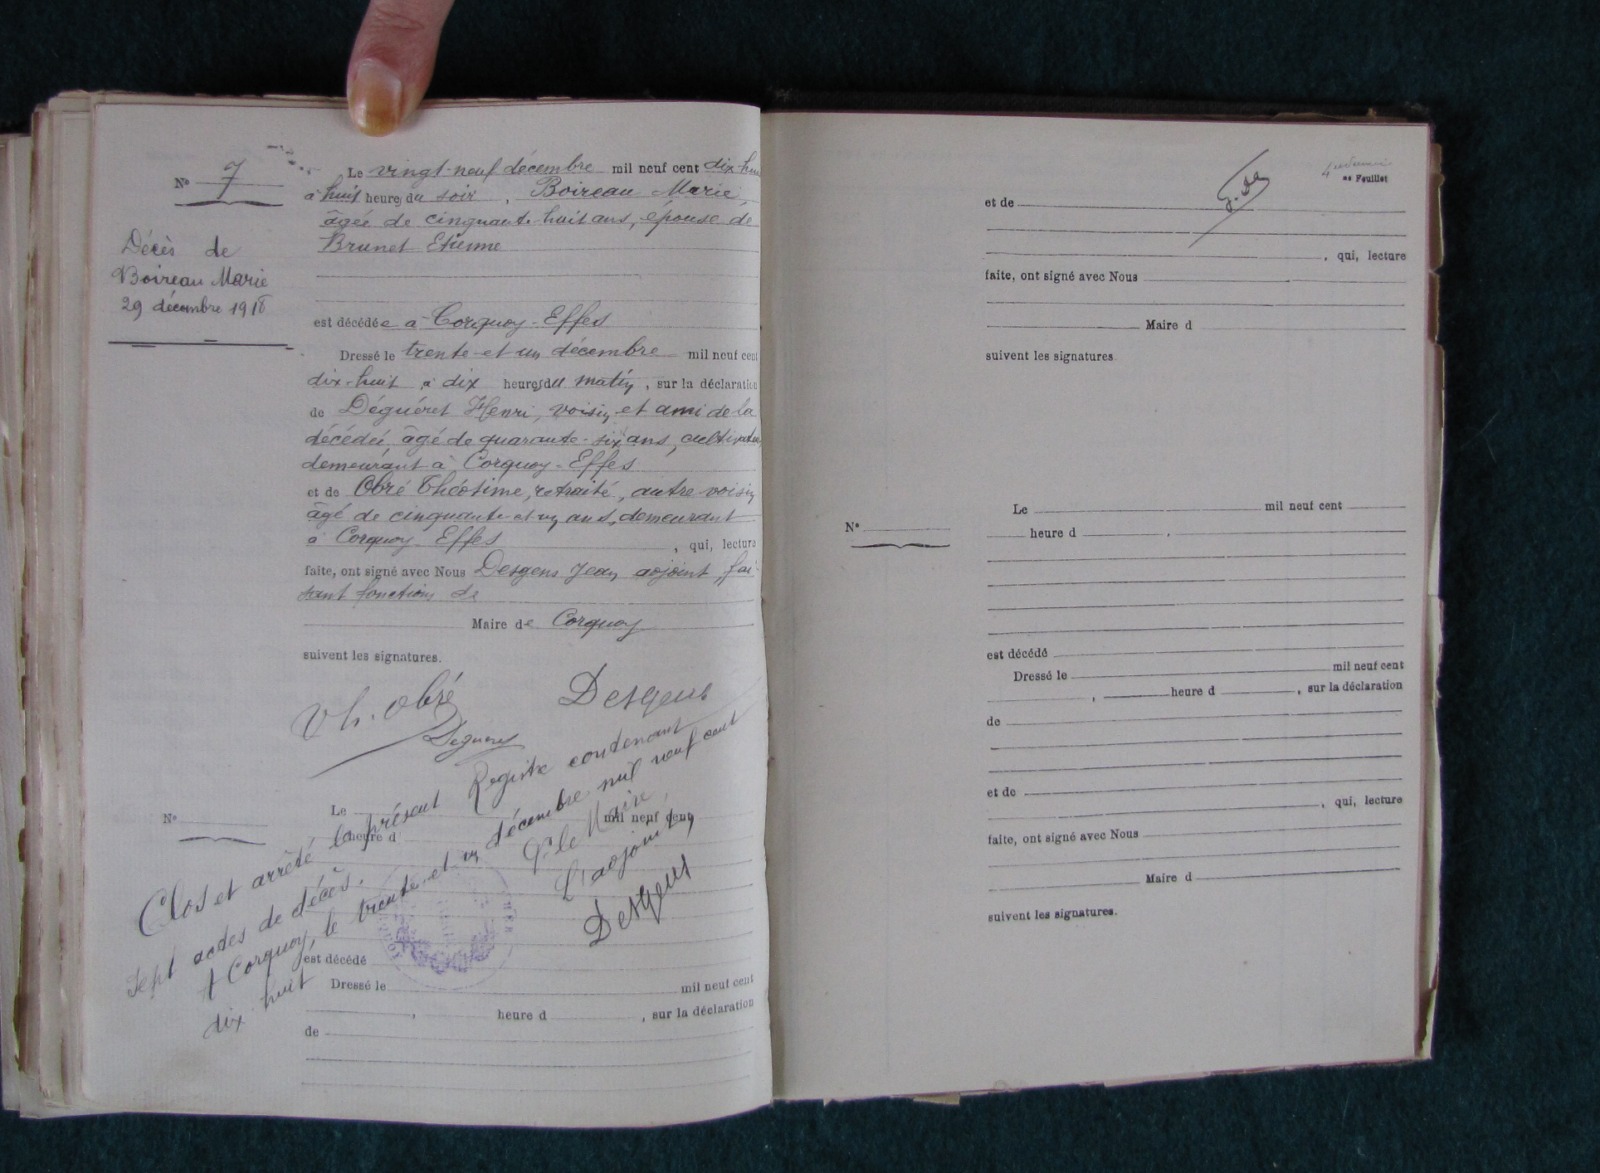 N° 7
Décès de
Boireau Marie
29 décembre 1918
Le vingt-neuf décembre mil neuf cent dix-hui
à huit heures du soir, Boireau Marie,
âgée de cinquante-huit ans, épouse de
Brunet Etienne
est décédée à Corquoy-Effes
Dressé le trente-et-un décembre mil neuf cent
dix-huit, à dix heures du matin, sur la déclaration
de Déguéret Henri, voisin et ami de la
décédée, âgé de quarante-six ans, cultivateu
demeurant à Corquoy-Effes
et de Obré Théotime, retraité, autre voisin
âgé de cinquante-et-un ans, demeurant
à Corquoy-Effes, qui, lecture
faite, ont signé avec Nous Desgens Jean adjoint fai-
sant fonctions de
Maire de Corquoy
suivent les signatures.
Th. Obré
Desgens
Deguéret
N°
Le
mil neuf cent
heure d
Clos et arrêté le présent Registre contenant
sept actes de décès.
A Corquoy, le trente-et-un décembre mil neuf cent
dix huit
P. le Maire,
L'adjoint,
Desgens
est décédé
Dressé le mil neuf cent
, heure d , sur la déclaration
de
4
me Feuillet
et de
, qui, lecture
faite, ont signé avec Nous
Maire d
suivent les signatures.
N°
Le mil neuf cent
heure d ,
est décédé
Dressé le mil neuf cent
, heure d , sur la déclaration
de
et de
, qui, lecture
faite, ont signé avec Nous
Maire d
suivent les signatures.